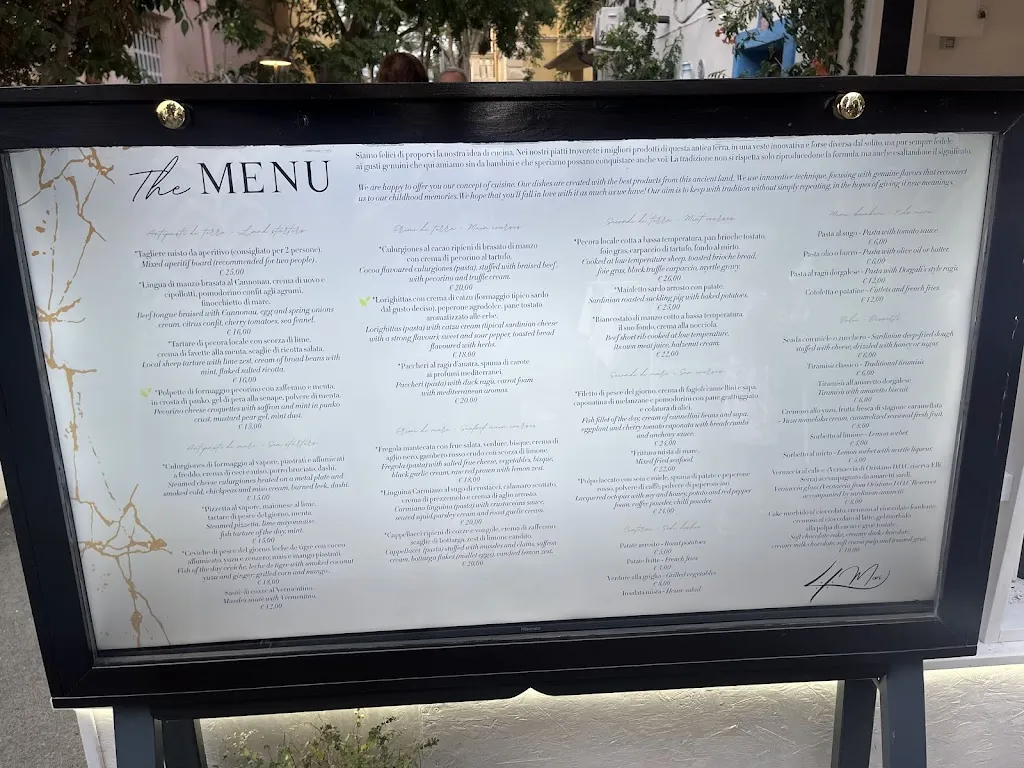 The MENU
Siamo felici di proporvi la nostra idea di cucina. Nei nostri piatti troverete i migliori prodotti di questa antica terra, in una veste innovativa e forse diversa dal solito, ma pur sempre fedele
ai gusti genuini che qui amiamo sin da bambini e che speriamo possano conquistare anche voi. La tradizione non si rispetta solo riproducendone la formula, ma anche esaltandone il significato.
We are happy to offer you our concept of cuisine. Our dishes are created with the best products from this ancient land. We use innovative technique, focusing with genuine flavors that reconnect
us to our childhood memories. We hope that you'll fall in love with it as much as we have! Our aim is to keep with tradition without simply repeating, in the hopes of giving it new meanings.
Antipasti di terra - Land starters
*Tagliere misto da aperitivo (consigliato per 2 persone).
Mixed aperitif board (recommended for two people).
€ 25,00
*Lingua di manzo brasata al Cannonau, crema di uovo e
cipollotti, pomodorino confit agli agrumi,
finocchietto di mare.
Beef tongue braised with Cannonau, egg and spring onions
cream, citrus confit, cherry tomatoes, sea fennel.
€ 16,00
*Tartare di pecora locale con scorza di lime,
crema di favette alla menta, scaglie di ricotta salata.
Local sheep tartare with lime zest, cream of broad beans with
mint, flaked salted ricotta.
€ 16,00
*Polpette di formaggio pecorino con zafferano e menta,
in crosta di panko, gel di pera alla senape, polvere di menta.
Pecorino cheese croquettes with saffron and mint in panko
crust, mustard pear gel, mint dust.
€ 13,00
Antipasti di mare - Sea starters
*Culurgiones di formaggio al vapore, piastrati e affumicati
a freddo, crema di ceci e miso, porro bruciato, dashi.
Steamed cheese culurgiones heated on a metal plate and
smoked cold, chickpeas and miso cream, burned leek, dashi.
€ 15,00
*Pizzetta al vapore, maionese al lime,
tartare di pesce del giorno, menta.
Steamed pizzetta, lime mayonnaise,
fish tartare of the day, mint.
€ 15,00
*Ceviche di pesce del giorno, leche de tigre con cocco
affumicato, yuzu e zenzero, mais e mango piastrati.
Fish of the day ceviche, leche de tigre with smoked coconut
yuzu and ginger, grilled corn and mango.
€ 18,00
Sauté di cozze al Vermentino.
Mussles sauté with Vermentino.
€ 12,00
Primi di terra - Main courses
*Culurgiones al cacao ripieni di brasato di manzo
con crema di pecorino al tartufo.
Cocoa flavoured culurgiones (pasta), stuffed with braised beef,
with pecorino and truffle cream.
€ 20,00
*Lorighittas con crema di caizu (formaggio tipico sardo
dal gusto deciso), peperone agrodolce, pane tostato
aromatizzato alle erbe.
Lorighittas (pasta) with caizu cream (tipical sardinian cheese
with a strong flavour), sweet and sour pepper, toasted bread
flavoured with herbs.
€ 18,00
*Paccheri al ragù d'anatra, spuma di carote
ai profumi mediterranei.
Paccheri (pasta) with duck ragù, carrot foam
with mediterranean aromas.
€ 20,00
Primi di mare - Seafood main courses
*Fregola mantecata con frue salata, verdure, bisque, crema di
aglio nero, gambero rosso crudo con scorza di limone.
Fregola (pasta) with salted frue cheese, vegetables, bisque,
black garlic cream, raw red prawn with lemon zest.
€ 18,00
*Linguina Carmiano al sugo di crostacei, calamaro scottato,
crema di prezzemolo e crema di aglio arrosto.
Carmiano linguina (pasta) with crustaceans sauce,
seared squid, parsley cream and roast garlic cream.
€ 20,00
*Cappellacci ripieni di cozze e vongole, crema di zafferano,
scaglie di bottarga, zest di limone candito.
Cappellacci (pasta) stuffed with mussles and clams, saffron
cream, bottarga flakes (mullet eggs), candied lemon zest.
€ 20,00
Secondi di terra - Meat courses
*Pecora locale cotta a bassa temperatura, pan brioche tostato,
foie gras, carpaccio di tartufo, fondo al mirto.
Cooked at low temperature sheep, toasted brioche bread,
foie gras, black truffle carpaccio, myrtle gravy.
€ 26,00
*Maialetto sardo arrosto con patate.
Sardinian roasted suckling pig with baked potatoes.
€ 25,00
*Biancostato di manzo cotto a bassa temperatura,
il suo fondo, crema alla nocciola.
Beef short rib cooked at low temperature,
its own meat juice, hazelnut cream.
€ 22,00
Secondi di mare - Sea courses
*Filetto di pesce del giorno, crema di fagioli cannellini e sapa,
caponatina di melanzane e pomodorini con pane grattugiato
e colatura di alici.
Fish fillet of the day, cream of cannellini beans and sapa,
eggplant and cherry tomato caponata with bread crumbs
and anchovy sauce.
€ 24,00
*Frittura mista di mare.
Mixed fried seafood.
€ 22,00
*Polpo laccato con soia e miele, spuma di patate e peperone
rosso, polvere di caffè, polvere di peperoncino.
Lacquered octopus with soy and honey, potato and red pepper
foam, coffee powder, chilli powder.
€ 24,00
Contorni - Side dishes
Patate arrosto - Roast potatoes
€ 5,00
Patate fritte - French fries
€ 5,00
Verdure alla griglia - Grilled vegetables
€ 6,00
Insalata mista - House salad
Menu bambini - Kids menu
Pasta al sugo - Pasta with tomato sauce
€ 6,00
Pasta olio o burro - Pasta with olive oil or butter.
€ 6,00
Pasta al ragù dorgalese - Pasta with Dorgali's style ragù.
€ 12,00
Cotoletta e patatine - Cutlets and french fries.
€ 12,00
Dolci - Desserts
Seada con miele o zucchero - Sardinian deep-fried dough
stuffed with cheese, drizzled with honey or sugar.
€ 6,00
Tiramisù classico - Traditional tiramisù
€ 6,00
Tiramisù all'amaretto dorgalese
Tiramisù with amaretto biscuit
Cremoso allo yuzu, frutta fresca di stagione caramellata
- Yuzu namelaka cream, caramelized seasonal fresh fruit.
Sorbetto al limone - Lemon sorbet
Sorbetto al mirto - Lemon sorbet with myrtle liqueur
Vernaccia di Oristano D.O.C. riserva
Serra) accompagnato da amaretti sardi.
accompanied by sardinian amaretti
Soft chocolate cake, creamy dark chocolate,
€ 10,00
4 Mori
Hisense